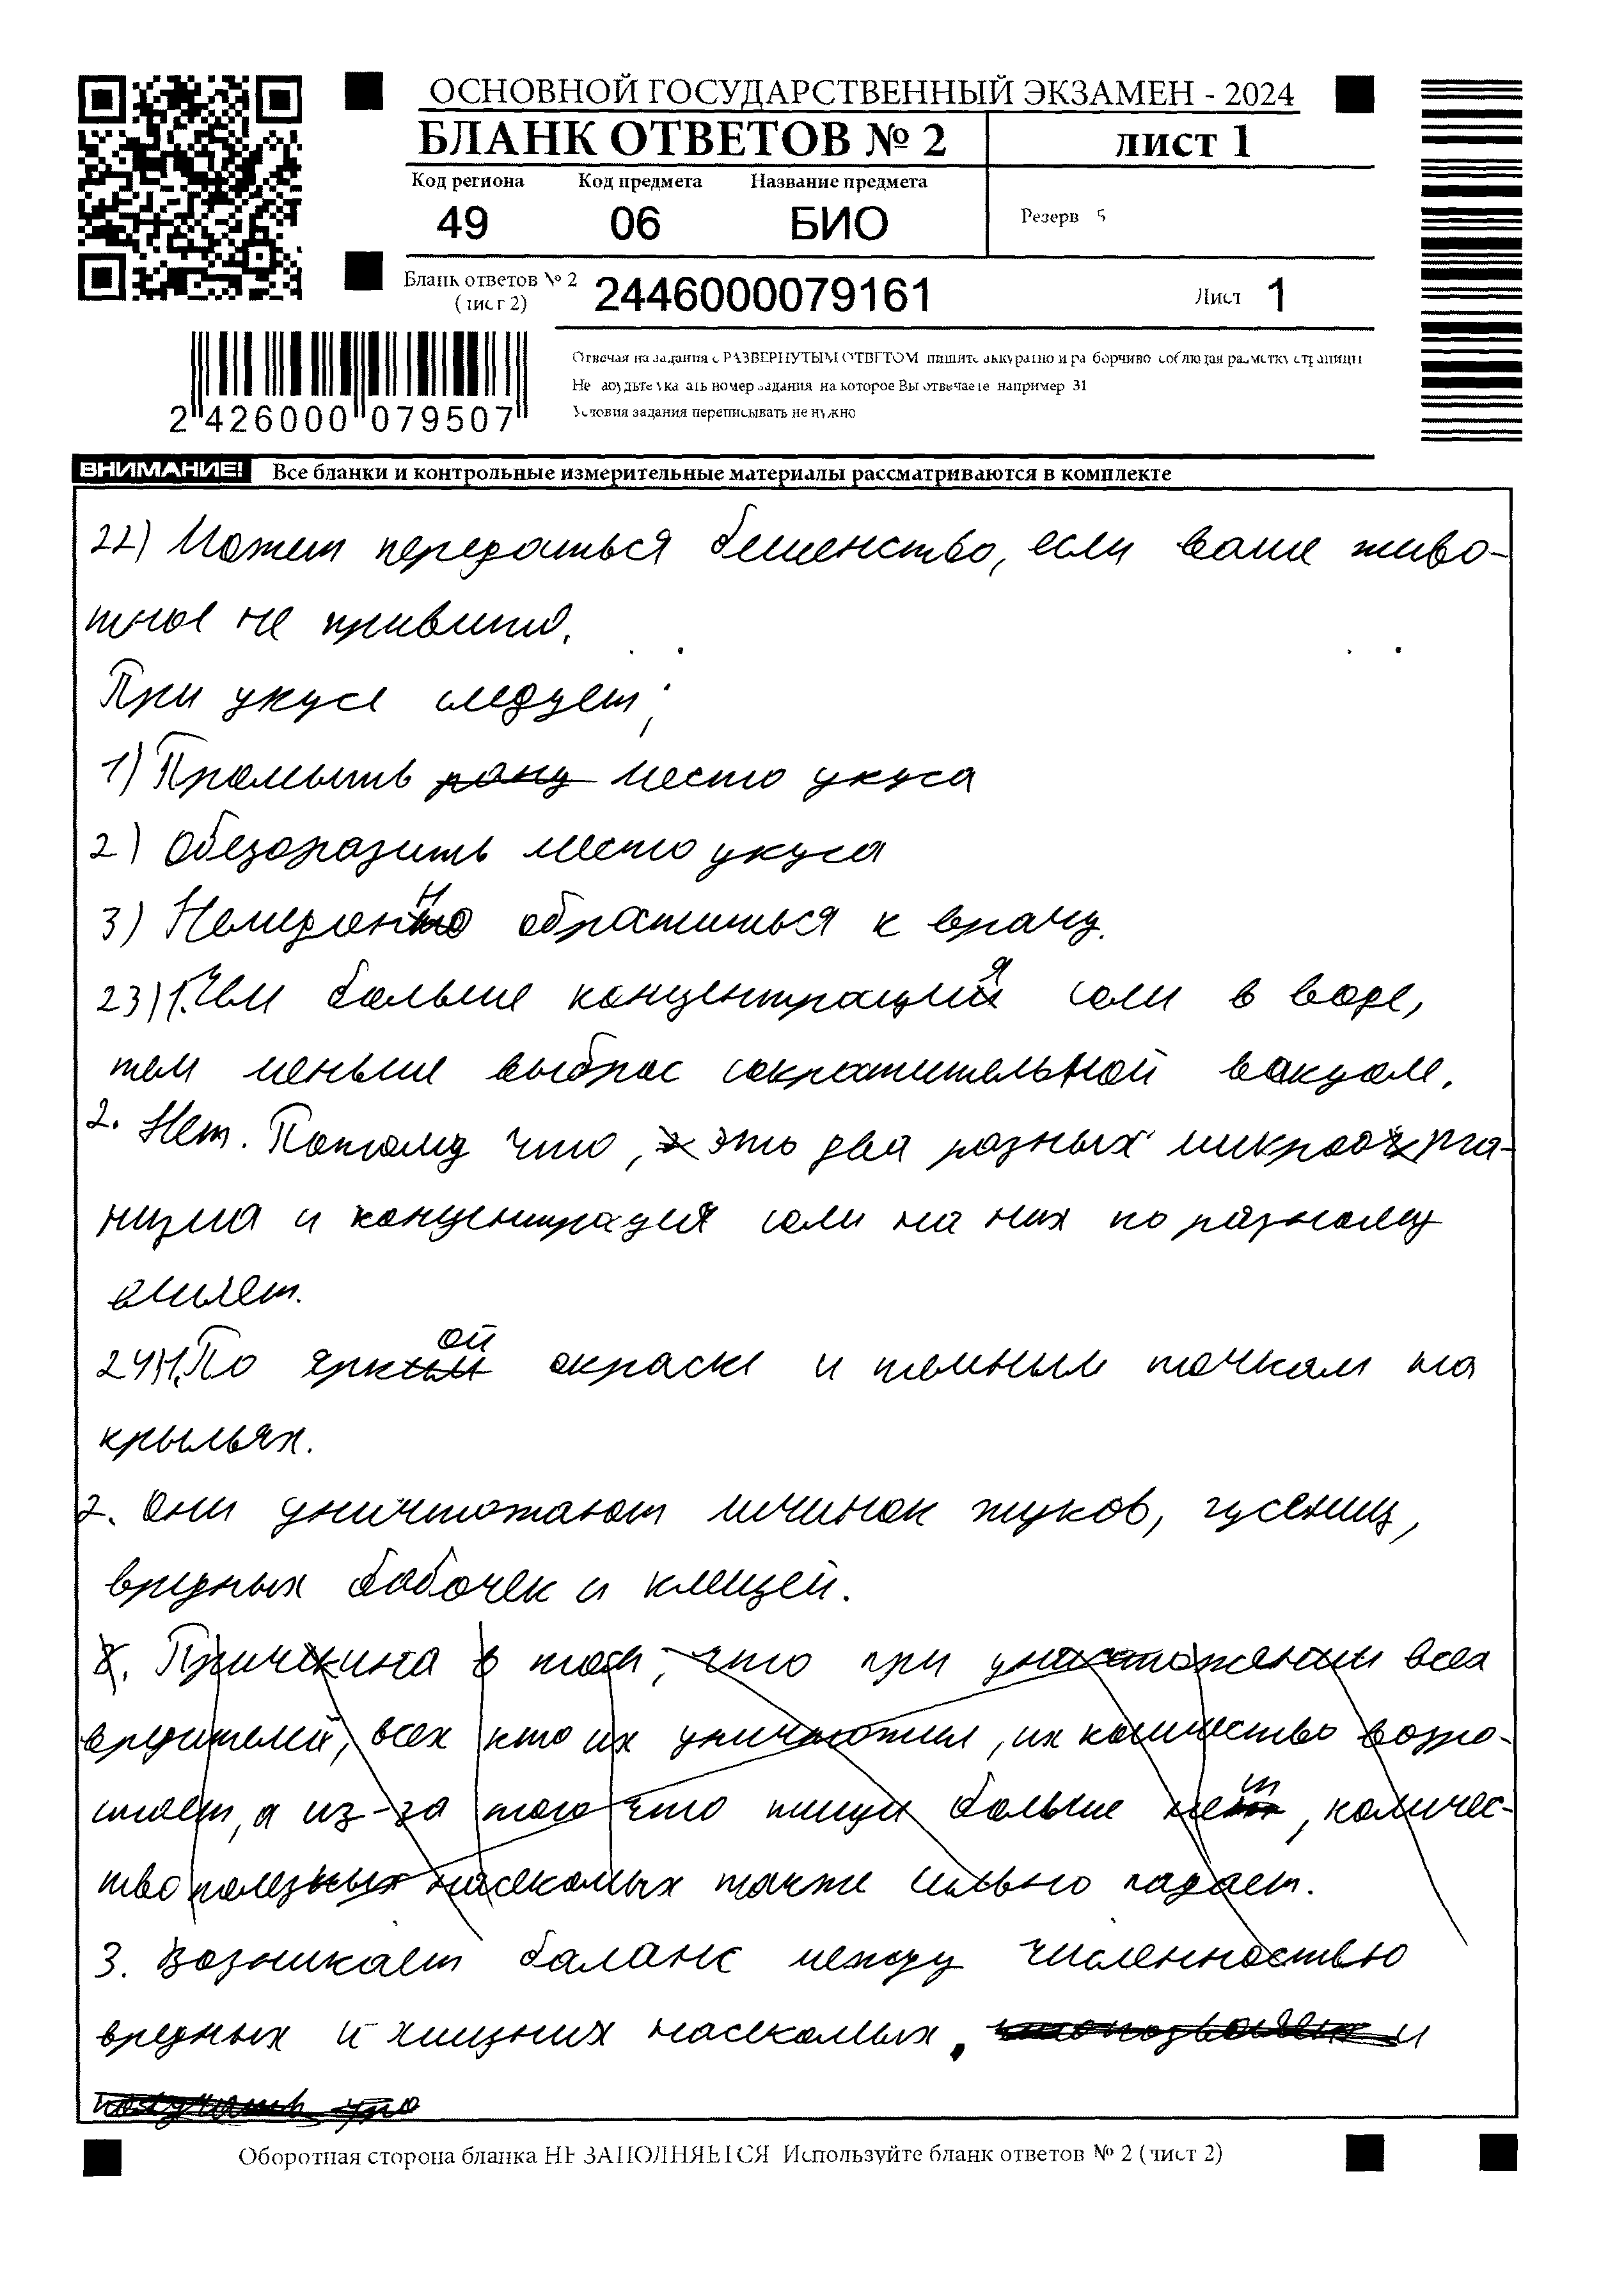 ОСНОВНОЙ ГОСУДАРСТВЕННЫЙ ЭКЗАМЕН - 2024
БЛАНК ОТВЕТОВ № 2
лист 1
Код региона Код предмета Название предмета
49 06 БИО
Резерв 5
Бланк ответов № 2 (лист 2)
2446000079161
Лист 1
Отвечая на задания с РАЗВЕРНУТЫМ ОТВЕТОМ пишите аккуратно и разборчиво соблюдая разметку страницы
Не забудьте указать номер задания на которое Вы отвечаете например 31
Условия задания переписывать не нужно
2 426000 079507
ВНИМАНИЕ! Все бланки и контрольные измерительные материалы рассматриваются в комплекте
22) Может передаться бешенство, если ваше живо-
тное не привито.
При укусе следует:
1) Промыть рану место укуса
2) Обеззаразить место укуса
3) Немедленно обратиться к врачу.
23) 1. Чем больше концентрация соли в воде,
тем меньше выброс сократительной вакуоле.
2. Нет. Потому что, это два разных микроорга-
низма и концентрация соли на них по разному
влияет.
24) 1. По яркой окраске и темным точкам на
крыльях.
2. Они уничтожают личинок жуков, гусениц,
вредных бабочек и клещей.
3. Причина в том, что при уничтожении всех
вредителей, всех кто их уничтожил, их количество возро-
стает, а из-за того что пищи больше нет, количес-
тво полезных насекомых также сильно падает.
3. Возникает баланс между численностью
вредных и хищних насекомых. и
Оборотная сторона бланка НЕ ЗАПОЛНЯЕТСЯ Используйте бланк ответов № 2 (лист 2)